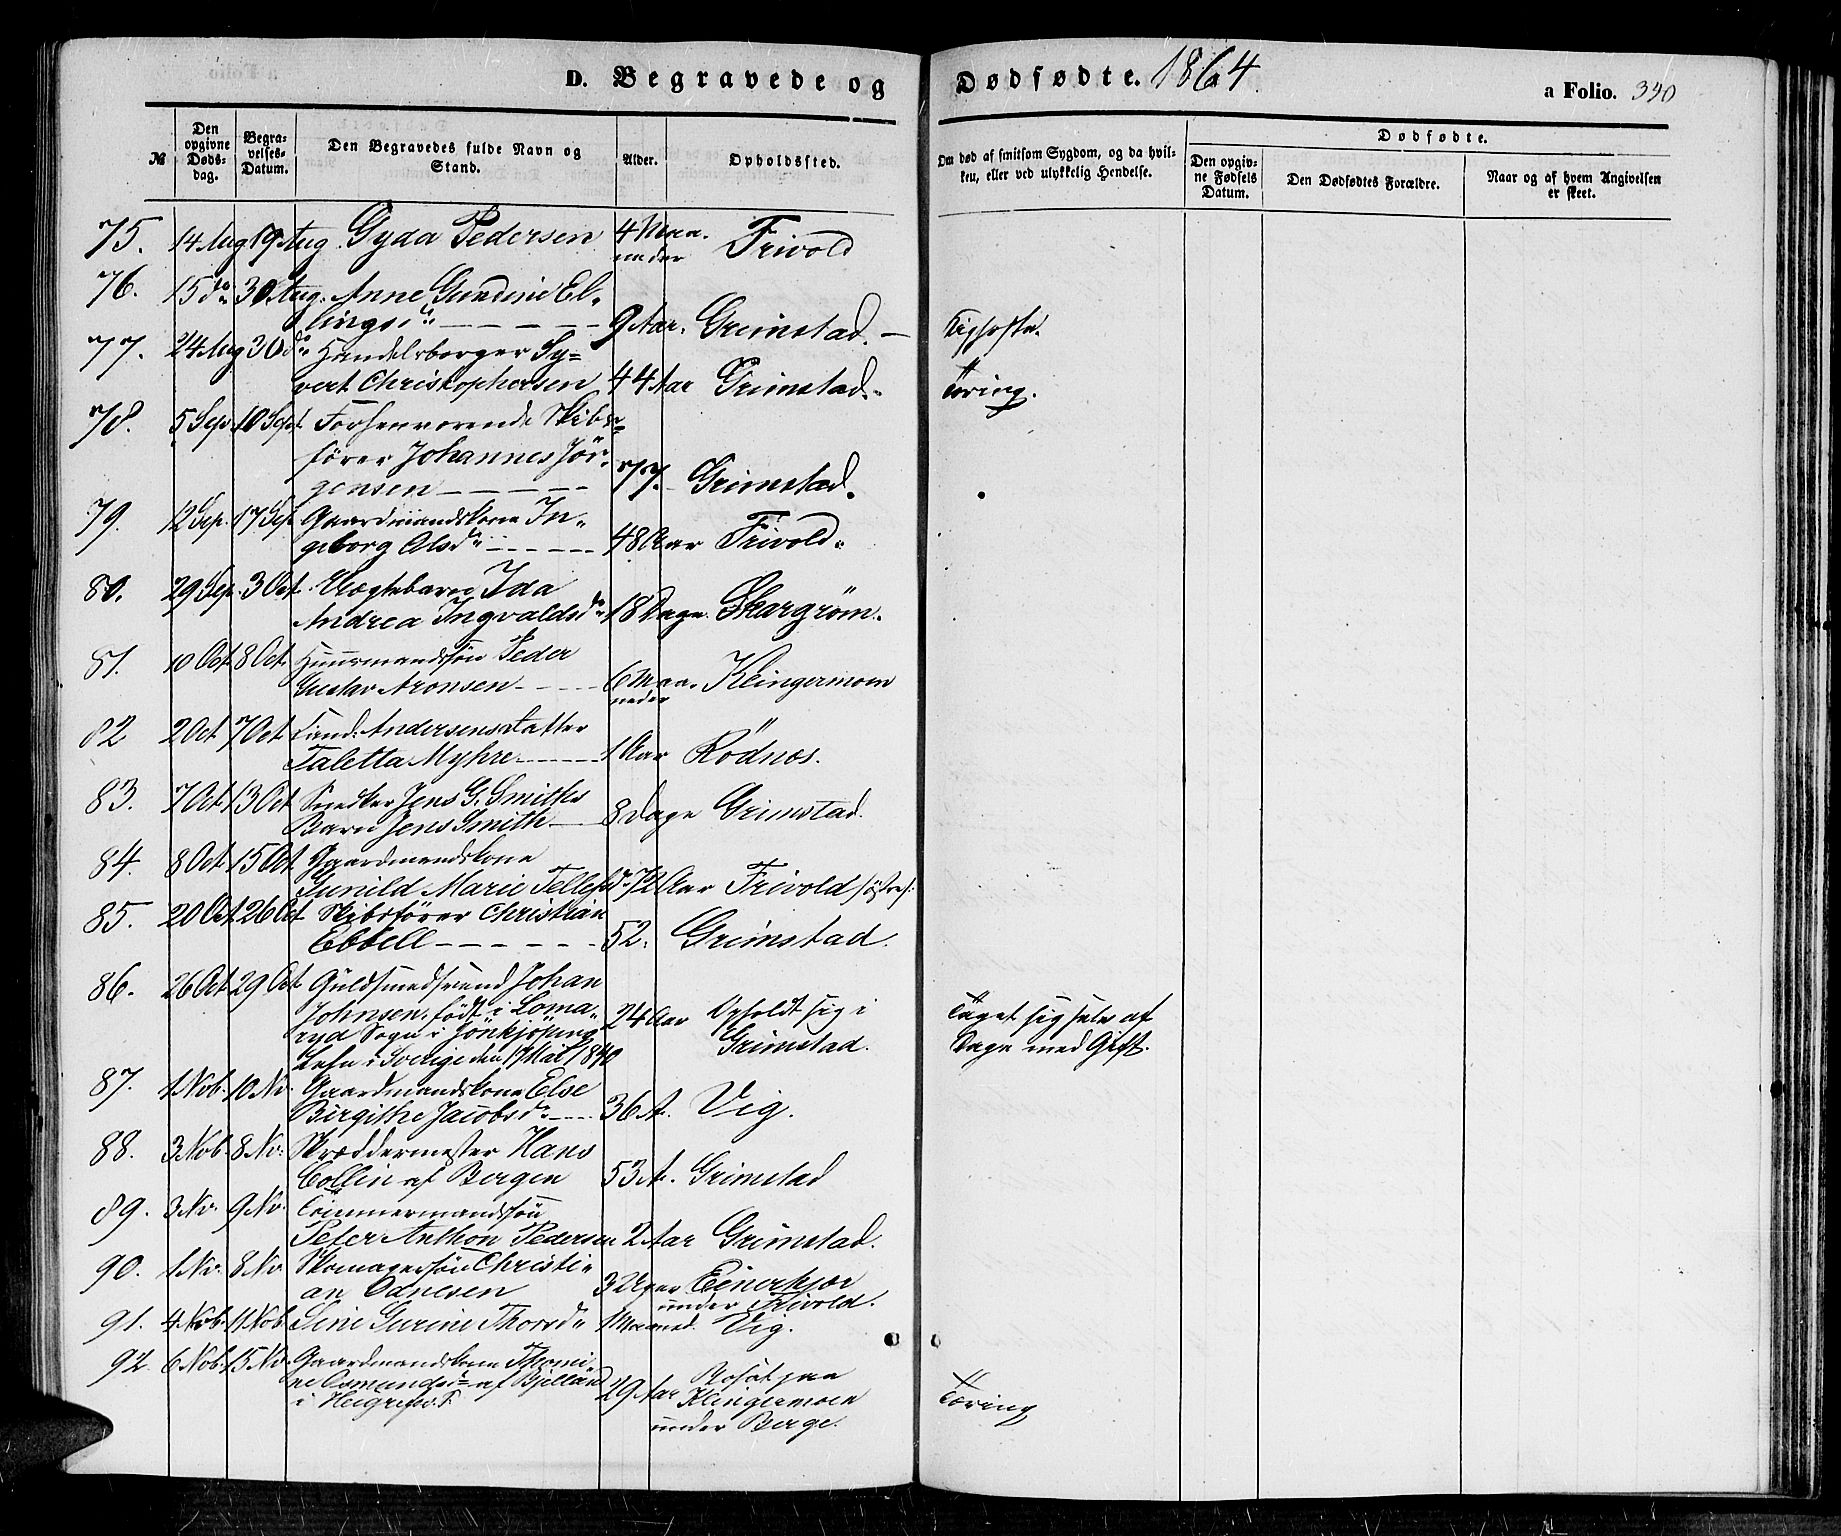 D. Begravede og Dødfødte. 1864
a Folio. 340
№
Den opgivne Døds-dag.
Begra-velses-Datum.
Den Begravedes fulde Navn og Stand.
Alder.
Opholdssted.
Om død af smitsom Sygdom, og da hvil-ken, eller ved ulykkelig Hendelse.
Dødfødte.
Den opgiv-ne Fødsels Datum.
Den Dødfødtes Forældre.
Naar og af hvem Angivelsen er skeet.
75. 14 Aug 19 Aug. Gyda Pedersen 4 Maa- Frivold
neder
76. 15 do 30 Aug. Anne Gundine El-
lingsd. 9 Aar. Grimstad. Kighoste.
77. 24 Aug 30 do Handelsborger Sy=
vert Christophersen 44 Aar Grimstad. Tæring.
78. 5 Sep. 10 Sept. Forhenværende Skibs=
fører Johannes Jör-
gensen 77. Grimstad.
79. 12 Sep. 17 Sep. Gaardmandskone In-
geborg Olsd. 48 Aar Frivold.
80. 29 Sep. 3 Oct. Uægtebarn Ida
Andrea Ingvaldsd. 18 Dage.
81. 10 Oct. 8 Oct. Huusmandssön Peder
Gustav Aronsen 6 Maa- Klingermoen
neder
82 2 Oct 7 Oct. Andersens Datter
Taletta Myhre 1 Aar Rödnes.
83. 7 Oct. 13 Oct Snedker Jens G. Smiths
Barn Jens Smith 8 Dage Grimstad.
84. 8 Oct. 15 Oct Gaardmandskone
Gunild Marie Tellefsd. 72 Aar Frivold
85. 20 Oct. 26 Oct Skibsförer Christian
Ebbell 52. Grimstad.
86. 26 Oct 29 Oct. Guldsmedsvend Johan
Johnsen, född i Loma- 24 Aar Opholdt sig i Taget sig selv af
ryd Sogn i Jönkjöping Grimstad. Dage med Gift.
Lehn i Sverige den 17 Mai 1840
87. 1 Nob. 10 Nv. Gaardmandskone Else
Birgithe Jacobsd. 36 A. Vig.
88. 3 Nob. 8 Nv. Skræddermester Hans
Collin af Bergen 53 A. Grimstad
89. 3 Nv. 9 Nv. Tömmermandssön
Peter Anthon Pedersen 2 Aar Grimstad.
90. 1 Nv. 8 Nv. Skomagersön Christi-
an Odnesen 3 Uger Egnerkjær
under Frivold.
91. 4 Nob. 11 Nob. Sine Surine Thorsd. 1 Maaned. Vig.
92. 6 Nob. 15 Nv. Gaardmandskone Thomi-
ne Osmundsd. af Bjelland 29 Aar Bosat paa Tæring
i Klingermoen
under Berge.